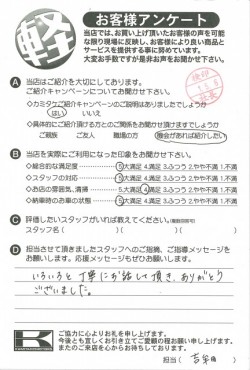 軽
お客様アンケート
当店では、お買い上げ頂いたお客様の声を可能
な限り現場に反映し、お客様により良い商品と
サービスを提供する事に努めています。
大変お手数ですが是非お声をお聞かせ下さい。
A 当店はご紹介を大切にしております。
ご紹介キャンペーンについてお聞かせ下さい
◇カミタケご紹介キャンペーンのご説明はありましたでしょうか
はい いいえ
◇具体的にご紹介頂ける方とのご関係をお聞かせ頂けますでしょうか
ご親族 ご友人 職場の方 機会があれば紹介したい
B 当店を実際にご利用になった印象をお聞かせ下さい。
◇総合的な満足度 5大満足 4.満足 3.ふつう 2.やや不満 1.不満
◇スタッフの対応 5大満足 4.満足 3.ふつう 2.やや不満 1.不満
◇お店の雰囲気、清掃 5.大満足 4.満足 3.ふつう 2.やや不満 1.不満
◇納車時のお車の状態 5大満足 4.満足 3.ふつう 2.やや不満 1.不満
C 評価したいスタッフがいれば教えてください。(複数回答可)
スタッフ名( )( )( )
D 担当させて頂きましたスタッフへのご指摘、ご指導メッセージを
お願いします。応援メッセージもぜひお願いします。
いろいろと丁寧にお話して頂き、ありがとう
ございました。
K
ご協力に心よりお礼を申し上げます。
今後とも宜しくお引き立てご愛顧の程お願い申し上げます。
またのご来店を心からお待ちしております。
担当( 様 )